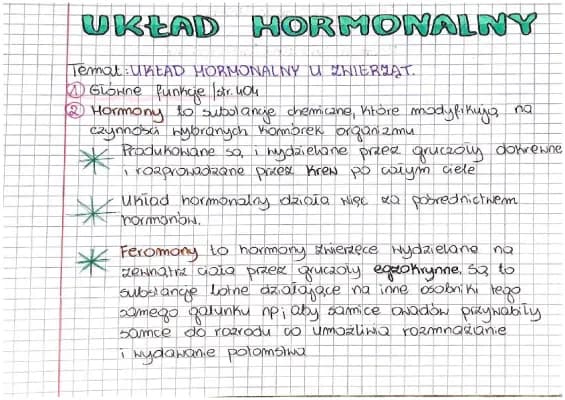 UKŁAD HORMONALNY
Temat: UKŁAD HORMONALNY U ZWIERZĄT.
1 Główne funkcje /str. 404
2 Hormony to substancje chemiczne, które modyfikują na
czynności wybranych komórek organizmu
Produkowane są i wydzielane przez gruczoły dokrewne
i rozprowadzane przez krew po całym ciele
Układ hormonalny działa więc za pośrednictwem
hormonów.
Feromony to hormony zwierzęce wydzielane na
zewnątrz ciała przez gruczoły egzokrynne. Są to
substancje lotne działające na inne osobniki tego
samego gatunku np; aby samice owadów przywabiły
samce do rozrodu co umożliwia rozmnażanie
i wydawanie potomstwa